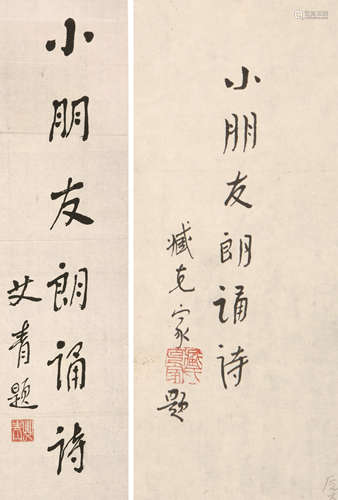 小朋友朗诵诗
艾青题
小朋友朗诵诗
臧克家
题